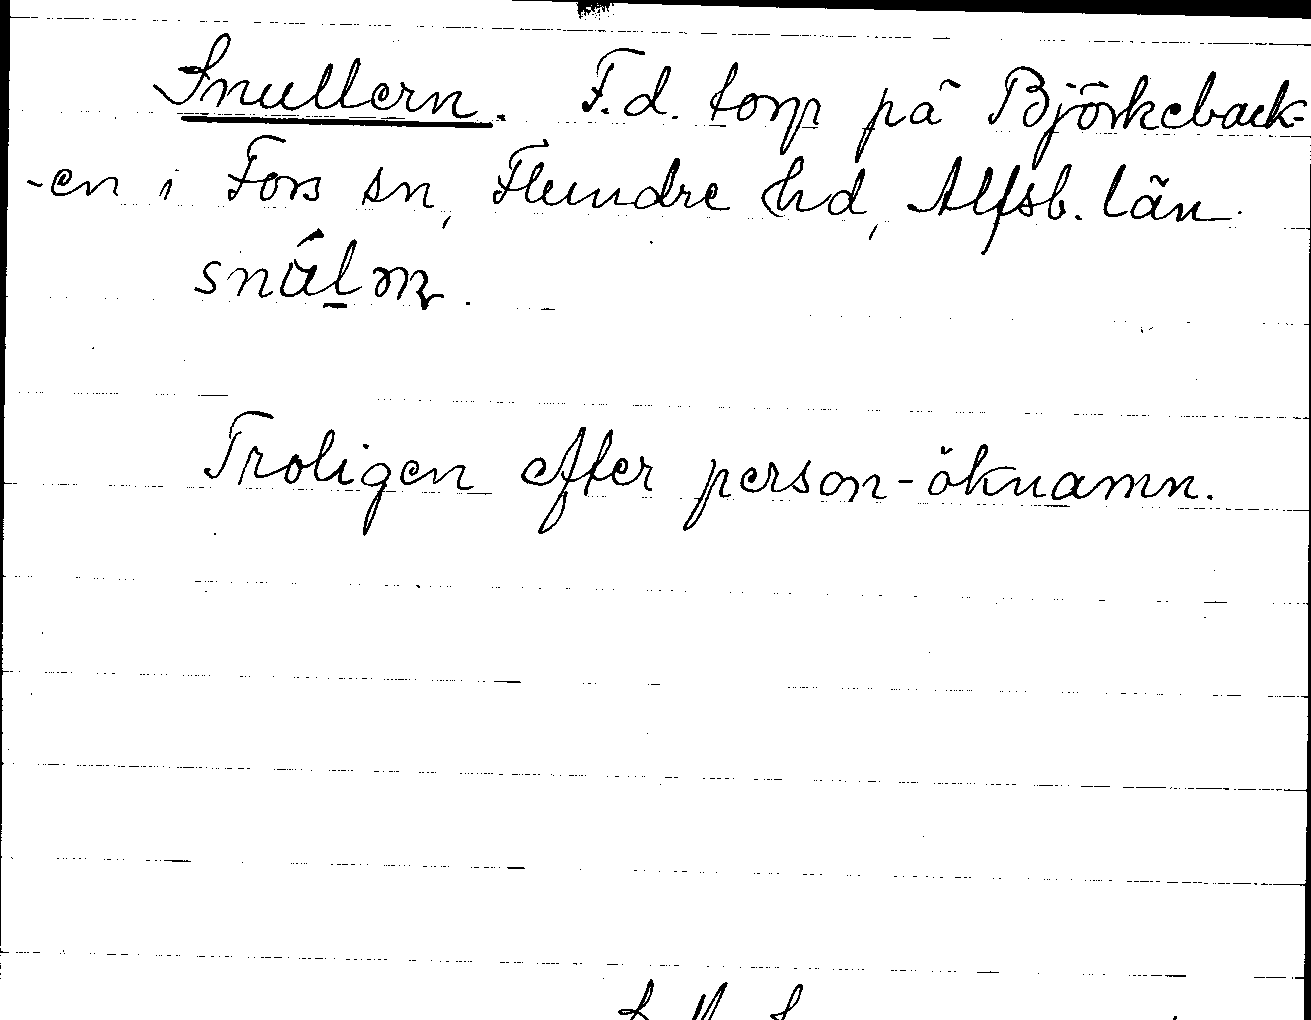 Snullern. F.d. torp på Björkeback-
-en i Fors sn, Flundre hd, Älfsb. län.
Troligen efter person-öknamn.